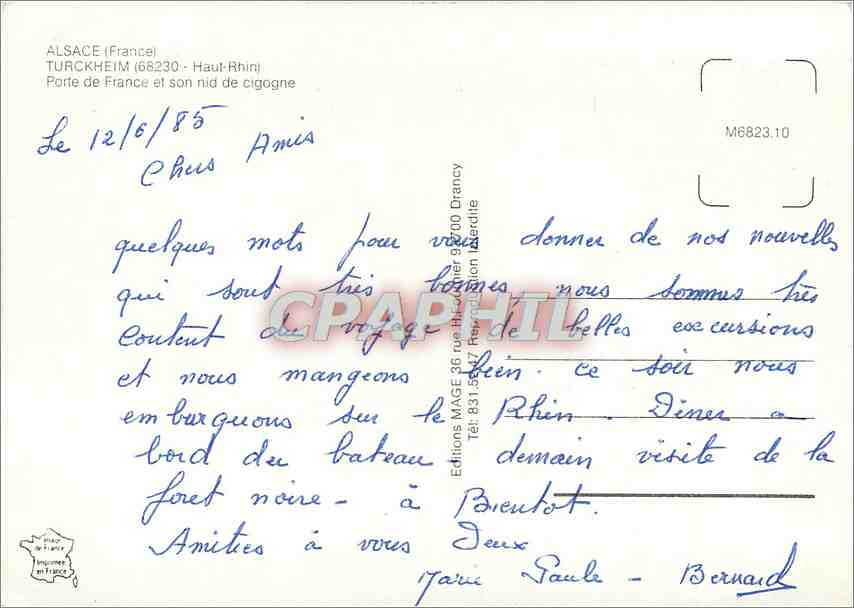 ALSACE (France)
TURCKHEIM (68230 - Haut-Rhin)
Porte de France et son nid de cigogne
M6823.10
Le 12/6/85
Chers Amis
quelques mots pour vous donner de nos nouvelles
qui sont très bonnes, nous sommes très
content du voyage de belles excursions
et nous mangeons bien. ce soir nous
embarquons sur le Rhin. Diner a
bord du bateau - demain visite de la
foret noire - à Bientot.
Amities à vous Deux
Marie Paule - Bernard
Editions MAGE 36 rue H. 93700 Drancy
Tél: 831. 47 Reproduction Interdite
CPAPHIL
Image
de France
Imprimée
en France